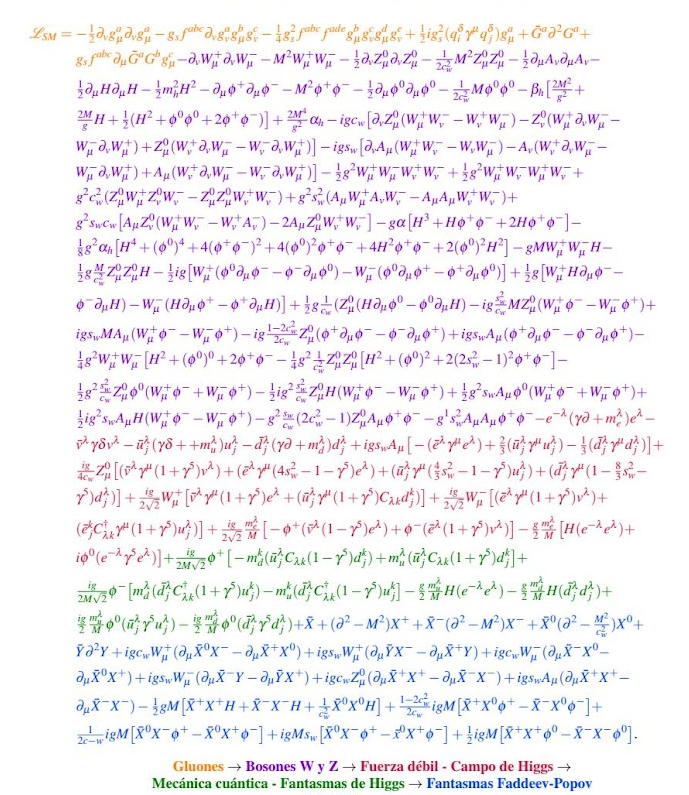 \mathscr{L}_{SM} = -\frac{1}{2}\partial_\nu g^a_\mu \partial_\nu g^a_\mu - g_s f^{abc}\partial_\nu g^a_\mu g^b_\mu g^c_\nu - \frac{1}{4}g^2_s f^{abc} f^{ade} g^b_\mu g^c_\nu g^d_\mu g^e_\nu + \frac{1}{2}ig^2_s(q^\delta_i \gamma^\mu q^\delta_j)g^a_\mu + \bar{G}^a \partial^2 G^a +
g_s f^{abc}\partial_\mu \bar{G}^a G^b g^c_\mu - \partial_\nu W^+_\mu \partial_\nu W^-_\mu - M^2 W^+_\mu W^-_\mu - \frac{1}{2}\partial_\nu Z^0_\mu \partial_\nu Z^0_\mu - \frac{1}{2c^2_w}M^2 Z^0_\mu Z^0_\mu - \frac{1}{2}\partial_\mu A_\nu \partial_\mu A_\nu -
\frac{1}{2}\partial_\mu H \partial_\mu H - \frac{1}{2}m^2_h H^2 - \partial_\mu \phi^+ \partial_\mu \phi^- - M^2 \phi^+ \phi^- - \frac{1}{2}\partial_\mu \phi^0 \partial_\mu \phi^0 - \frac{1}{2c^2_w}M\phi^0\phi^0 - \beta_h[\frac{2M^2}{g^2} +
\frac{2M}{g}H + \frac{1}{2}(H^2 + \phi^0\phi^0 + 2\phi^+\phi^-)] + \frac{2M^4}{g^2}\alpha_h - igc_w[\partial_\nu Z^0_\mu(W^+_\mu W^-_\nu - W^+_\nu W^-_\mu) - Z^0_\nu(W^+_\mu \partial_\nu W^-_\mu -
W^-_\mu \partial_\nu W^+_\mu) + Z^0_\mu(W^+_\nu \partial_\nu W^-_\mu - W^-_\nu \partial_\nu W^+_\mu)] - igs_w[\partial_\nu A_\mu(W^+_\mu W^-_\nu - W_\nu W^-_\mu) - A_\nu(W^+_\mu \partial_\nu W^-_\mu -
W^-_\mu \partial_\nu W^+_\mu) + A_\mu(W^+_\nu \partial_\nu W^-_\mu - W^-_\nu \partial_\nu W^+_\mu)] - \frac{1}{2}g^2 W^+_\mu W^-_\mu W^+_\nu W^-_\nu + \frac{1}{2}g^2 W^+_\mu W^-_\nu W^+_\mu W^-_\nu +
g^2 c^2_w(Z^0_\mu W^+_\mu Z^0_\nu W^-_\nu - Z^0_\mu Z^0_\mu W^+_\nu W^-_\nu) + g^2 s^2_w(A_\mu W^+_\mu A_\nu W^-_\nu - A_\mu A_\mu W^+_\nu W^-_\nu) +
g^2 s_w c_w[A_\mu Z^0_\nu(W^+_\mu W^-_\nu - W^+_\nu A^-_\nu) - 2A_\mu Z^0_\mu W^+_\nu W^-_\nu] - g\alpha[H^3 + H\phi^+\phi^- + 2H\phi^+\phi^-] -
\frac{1}{8}g^2 \alpha_h[H^4 + (\phi^0)^4 + 4(\phi^+\phi^-)^2 + 4(\phi^0)^2\phi^+\phi^- + 4H^2\phi^+\phi^- + 2(\phi^0)^2 H^2] - gMW^+_\mu W^-_\mu H -
\frac{1}{2}g\frac{M}{c^2_w}Z^0_\mu Z^0_\mu H - \frac{1}{2}ig[W^+_\mu(\phi^0 \partial_\mu \phi^- - \phi^- \partial_\mu \phi^0) - W^-_\mu(\phi^0 \partial_\mu \phi^+ - \phi^+ \partial_\mu \phi^0)] + \frac{1}{2}g[W^+_\mu H \partial_\mu \phi^- -
\phi^- \partial_\mu H) - W^-_\mu(H \partial_\mu \phi^+ - \phi^+ \partial_\mu H)] + \frac{1}{2}g\frac{1}{c_w}(Z^0_\mu(H \partial_\mu \phi^0 - \phi^0 \partial_\mu H) - ig\frac{s^2_w}{c_w}MZ^0_\mu(W^+_\mu \phi^- - W^-_\mu \phi^+) +
igs_w MA_\mu(W^+_\mu \phi^- - W^-_\mu \phi^+) - ig\frac{1-2c^2_w}{2c_w}Z^0_\mu(\phi^+ \partial_\mu \phi^- - \phi^- \partial_\mu \phi^+) + igs_w A_\mu(\phi^+ \partial_\mu \phi^- - \phi^- \partial_\mu \phi^+) -
\frac{1}{4}g^2 W^+_\mu W^-_\mu[H^2 + (\phi^0)^0 + 2\phi^+\phi^- - \frac{1}{4}g^2\frac{1}{c^2_w}Z^0_\mu Z^0_\mu[H^2 + (\phi^0)^2 + 2(2s^2_w - 1)^2\phi^+\phi^-] -
\frac{1}{2}g^2\frac{s^2_w}{c_w}Z^0_\mu \phi^0(W^+_\mu \phi^- + W^-_\mu \phi^+) - \frac{1}{2}ig^2\frac{s^2_w}{c_w}Z^0_\mu H(W^+_\mu \phi^- - W^-_\mu \phi^+) + \frac{1}{2}g^2 s_w A_\mu \phi^0(W^+_\mu \phi^- + W^-_\mu \phi^+) +
\frac{1}{2}ig^2 s_w A_\mu H(W^+_\mu \phi^- - W^-_\mu \phi^+) - g^2\frac{s_w}{c_w}(2c^2_w - 1)Z^0_\mu A_\mu \phi^+\phi^- - g^1 s^2_w A_\mu A_\mu \phi^+\phi^- - e^{-\lambda}(\gamma\partial + m^\lambda_e)e^\lambda -
\bar{\nu}^\lambda \gamma\delta \nu^\lambda - \bar{u}^\lambda_j(\gamma\delta + + m^\lambda_u)u^\lambda_j - \bar{d}^\lambda_j(\gamma\partial + m^\lambda_d)d^\lambda_j + igs_w A_\mu[-(\bar{e}^\lambda \gamma^\mu e^\lambda) + \frac{2}{3}(\bar{u}^\lambda_j \gamma^\mu u^\lambda_j) - \frac{1}{3}(\bar{d}^\lambda_j \gamma^\mu d^\lambda_j)] +
\frac{ig}{4c_w}Z^0_\mu[(\bar{\nu}^\lambda \gamma^\mu(1+\gamma^5)\nu^\lambda) + (\bar{e}^\lambda \gamma^\mu(4s^2_w - 1 - \gamma^5)e^\lambda) + (\bar{u}^\lambda_j \gamma^\mu(\frac{4}{3}s^2_w - 1 - \gamma^5)u^\lambda_j) + (\bar{d}^\lambda_j \gamma^\mu(1 - \frac{8}{3}s^2_w -
\gamma^5)d^\lambda_j)] + \frac{ig}{2\sqrt{2}}W^+_\mu[\bar{\nu}^\lambda \gamma^\mu(1+\gamma^5)e^\lambda + (\bar{u}^\lambda_j \gamma^\mu(1+\gamma^5)C_{\lambda k}d^k_j)] + \frac{ig}{2\sqrt{2}}W^-_\mu[(\bar{e}^\lambda \gamma^\mu(1+\gamma^5)\nu^\lambda) +
(\bar{e}^k_j C^\dagger_{\lambda k}\gamma^\mu(1+\gamma^5)u^\lambda_j)] + \frac{ig}{2\sqrt{2}}\frac{m^\lambda_e}{M}[-\phi^+(\bar{\nu}^\lambda(1-\gamma^5)e^\lambda) + \phi^-(\bar{e}^\lambda(1+\gamma^5)\nu^\lambda)] - \frac{g}{2}\frac{m^\lambda_e}{M}[H(e^{-\lambda}e^\lambda) +
i\phi^0(e^{-\lambda}\gamma^5 e^\lambda)] + \frac{ig}{2M\sqrt{2}}\phi^+[-m^k_d(\bar{u}^\lambda_j C_{\lambda k}(1-\gamma^5)d^k_j) + m^\lambda_u(\bar{u}^\lambda_j C_{\lambda k}(1+\gamma^5)d^k_j] +
\frac{ig}{2M\sqrt{2}}\phi^-[m^\lambda_d(\bar{d}^\lambda_j C^\dagger_{\lambda k}(1+\gamma^5)u^k_j) - m^k_u(\bar{d}^\lambda_j C^\dagger_{\lambda k}(1-\gamma^5)u^k_j] - \frac{g}{2}\frac{m^\lambda_u}{M}H(e^{-\lambda}e^\lambda) - \frac{g}{2}\frac{m^\lambda_d}{M}H(\bar{d}^\lambda_j d^\lambda_j) +
\frac{ig}{2}\frac{m^\lambda_u}{M}\phi^0(\bar{u}^\lambda_j \gamma^5 u^\lambda_j) - \frac{ig}{2}\frac{m^\lambda_d}{M}\phi^0(\bar{d}^\lambda_j \gamma^5 d^\lambda_j) + \bar{X} + (\partial^2 - M^2)X^+ + \bar{X}^-(\partial^2 - M^2)X^- + \bar{X}^0(\partial^2 - \frac{M^2}{c^2_w})X^0 +
\bar{Y}\partial^2 Y + igc_w W^+_\mu(\partial_\mu \bar{X}^0 X^- - \partial_\mu \bar{X}^+ X^0) + igs_w W^+_\mu(\partial_\mu \bar{Y}X^- - \partial_\mu \bar{X}^+ Y) + igc_w W^-_\mu(\partial_\mu \bar{X}^- X^0 -
\partial_\mu \bar{X}^0 X^+) + igs_w W^-_\mu(\partial_\mu \bar{X}^- Y - \partial_\mu \bar{Y}X^+) + igc_w Z^0_\mu(\partial_\mu \bar{X}^+ X^+ - \partial_\mu \bar{X}^- X^-) + igs_w A_\mu(\partial_\mu \bar{X}^+ X^+ -
\partial_\mu \bar{X}^- X^-) - \frac{1}{2}gM[\bar{X}^+ X^+ H + \bar{X}^- X^- H + \frac{1}{c^2_w}\bar{X}^0 X^0 H] + \frac{1-2c^2_w}{2c_w}igM[\bar{X}^+ X^0 \phi^+ - \bar{X}^- X^0 \phi^-] +
\frac{1}{2c-w}igM[\bar{X}^0 X^- \phi^+ - \bar{X}^0 X^+ \phi^-] + igMs_w[\bar{X}^0 X^- \phi^+ - \bar{x}^0 X^+ \phi^-] + \frac{1}{2}igM[\bar{X}^+ X^+ \phi^0 - \bar{X}^- X^- \phi^0].
Gluones → Bosones W y Z → Fuerza débil - Campo de Higgs →
Mecánica cuántica - Fantasmas de Higgs → Fantasmas Faddeev-Popov